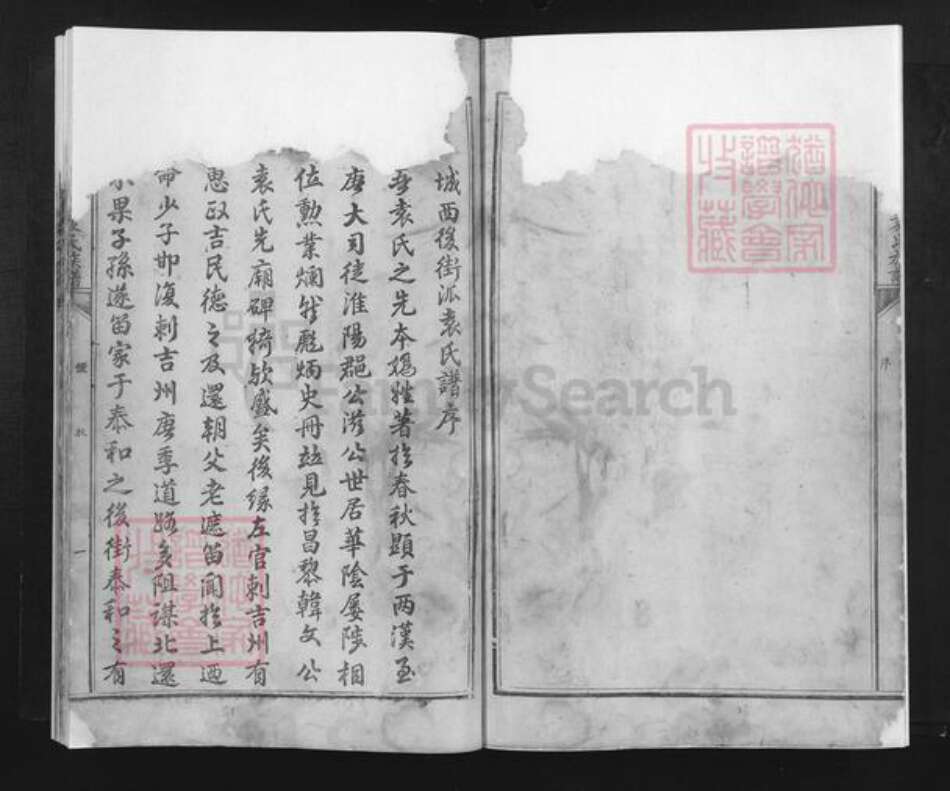 城西後街派袁氏譜序
吾袁氏之先本媯姓著於春秋顯于两漢至
唐大司徒淮陽郡公滋公世居華陰屡陟相
位勳業爛然彪炳史冊並見於昌黎韓文公
袁氏先廟碑猗歟盛矣後緣左官刺吉州有
思政吉民德之及還朝父老遮留聞於上迺
命少子邯復刺吉州唐季道路多阻謀北還
不果子孫遂留家于泰和之後街泰和之有
袁氏族譜
一
序
猶他家
譜學會
收藏
FamilySearch